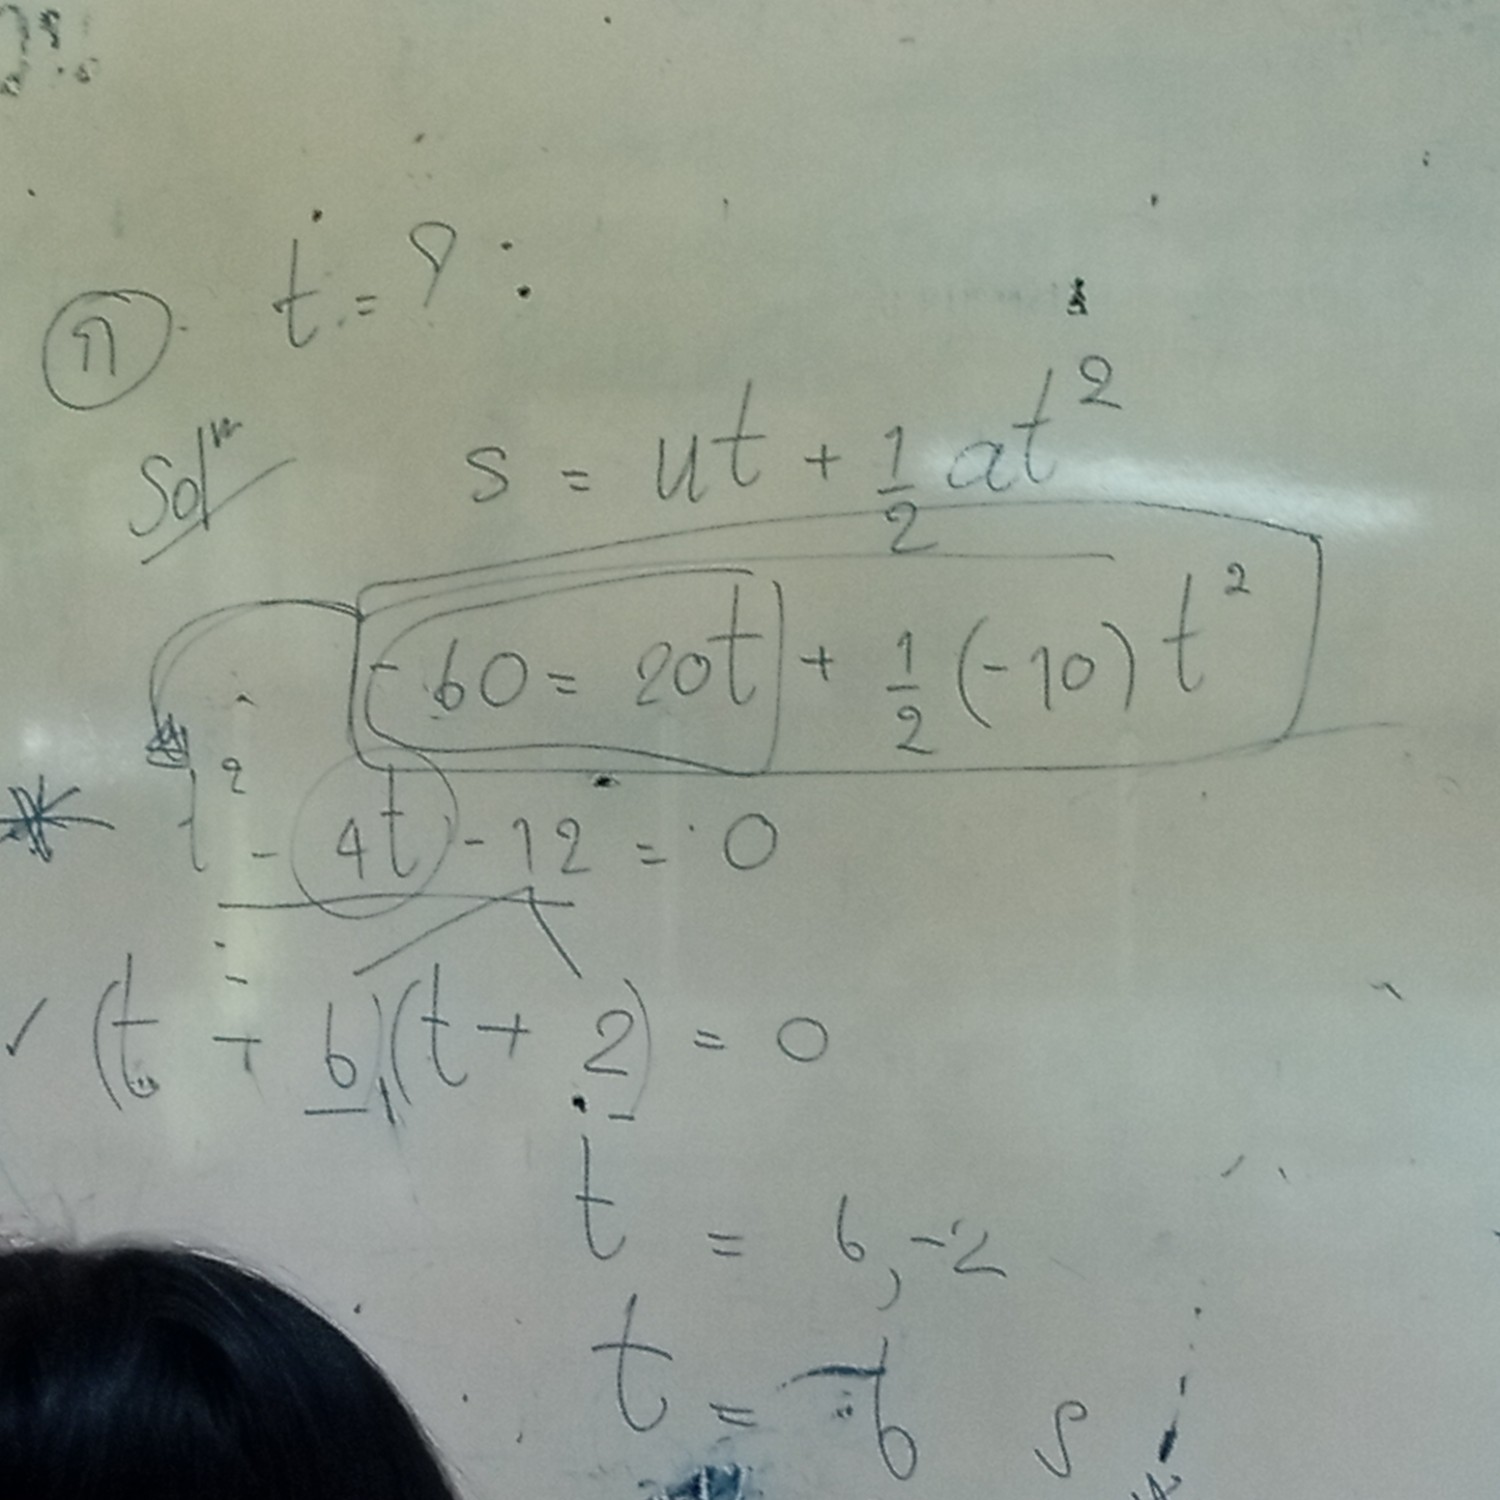 ก t = ? :
Solⁿ s = ut + 1/2 at²
-60 = 20t + 1/2 (-10) t²
t² - 4t - 12 = 0
✓ (t - 6)(t + 2) = 0
t = 6, -2
t = 6 s